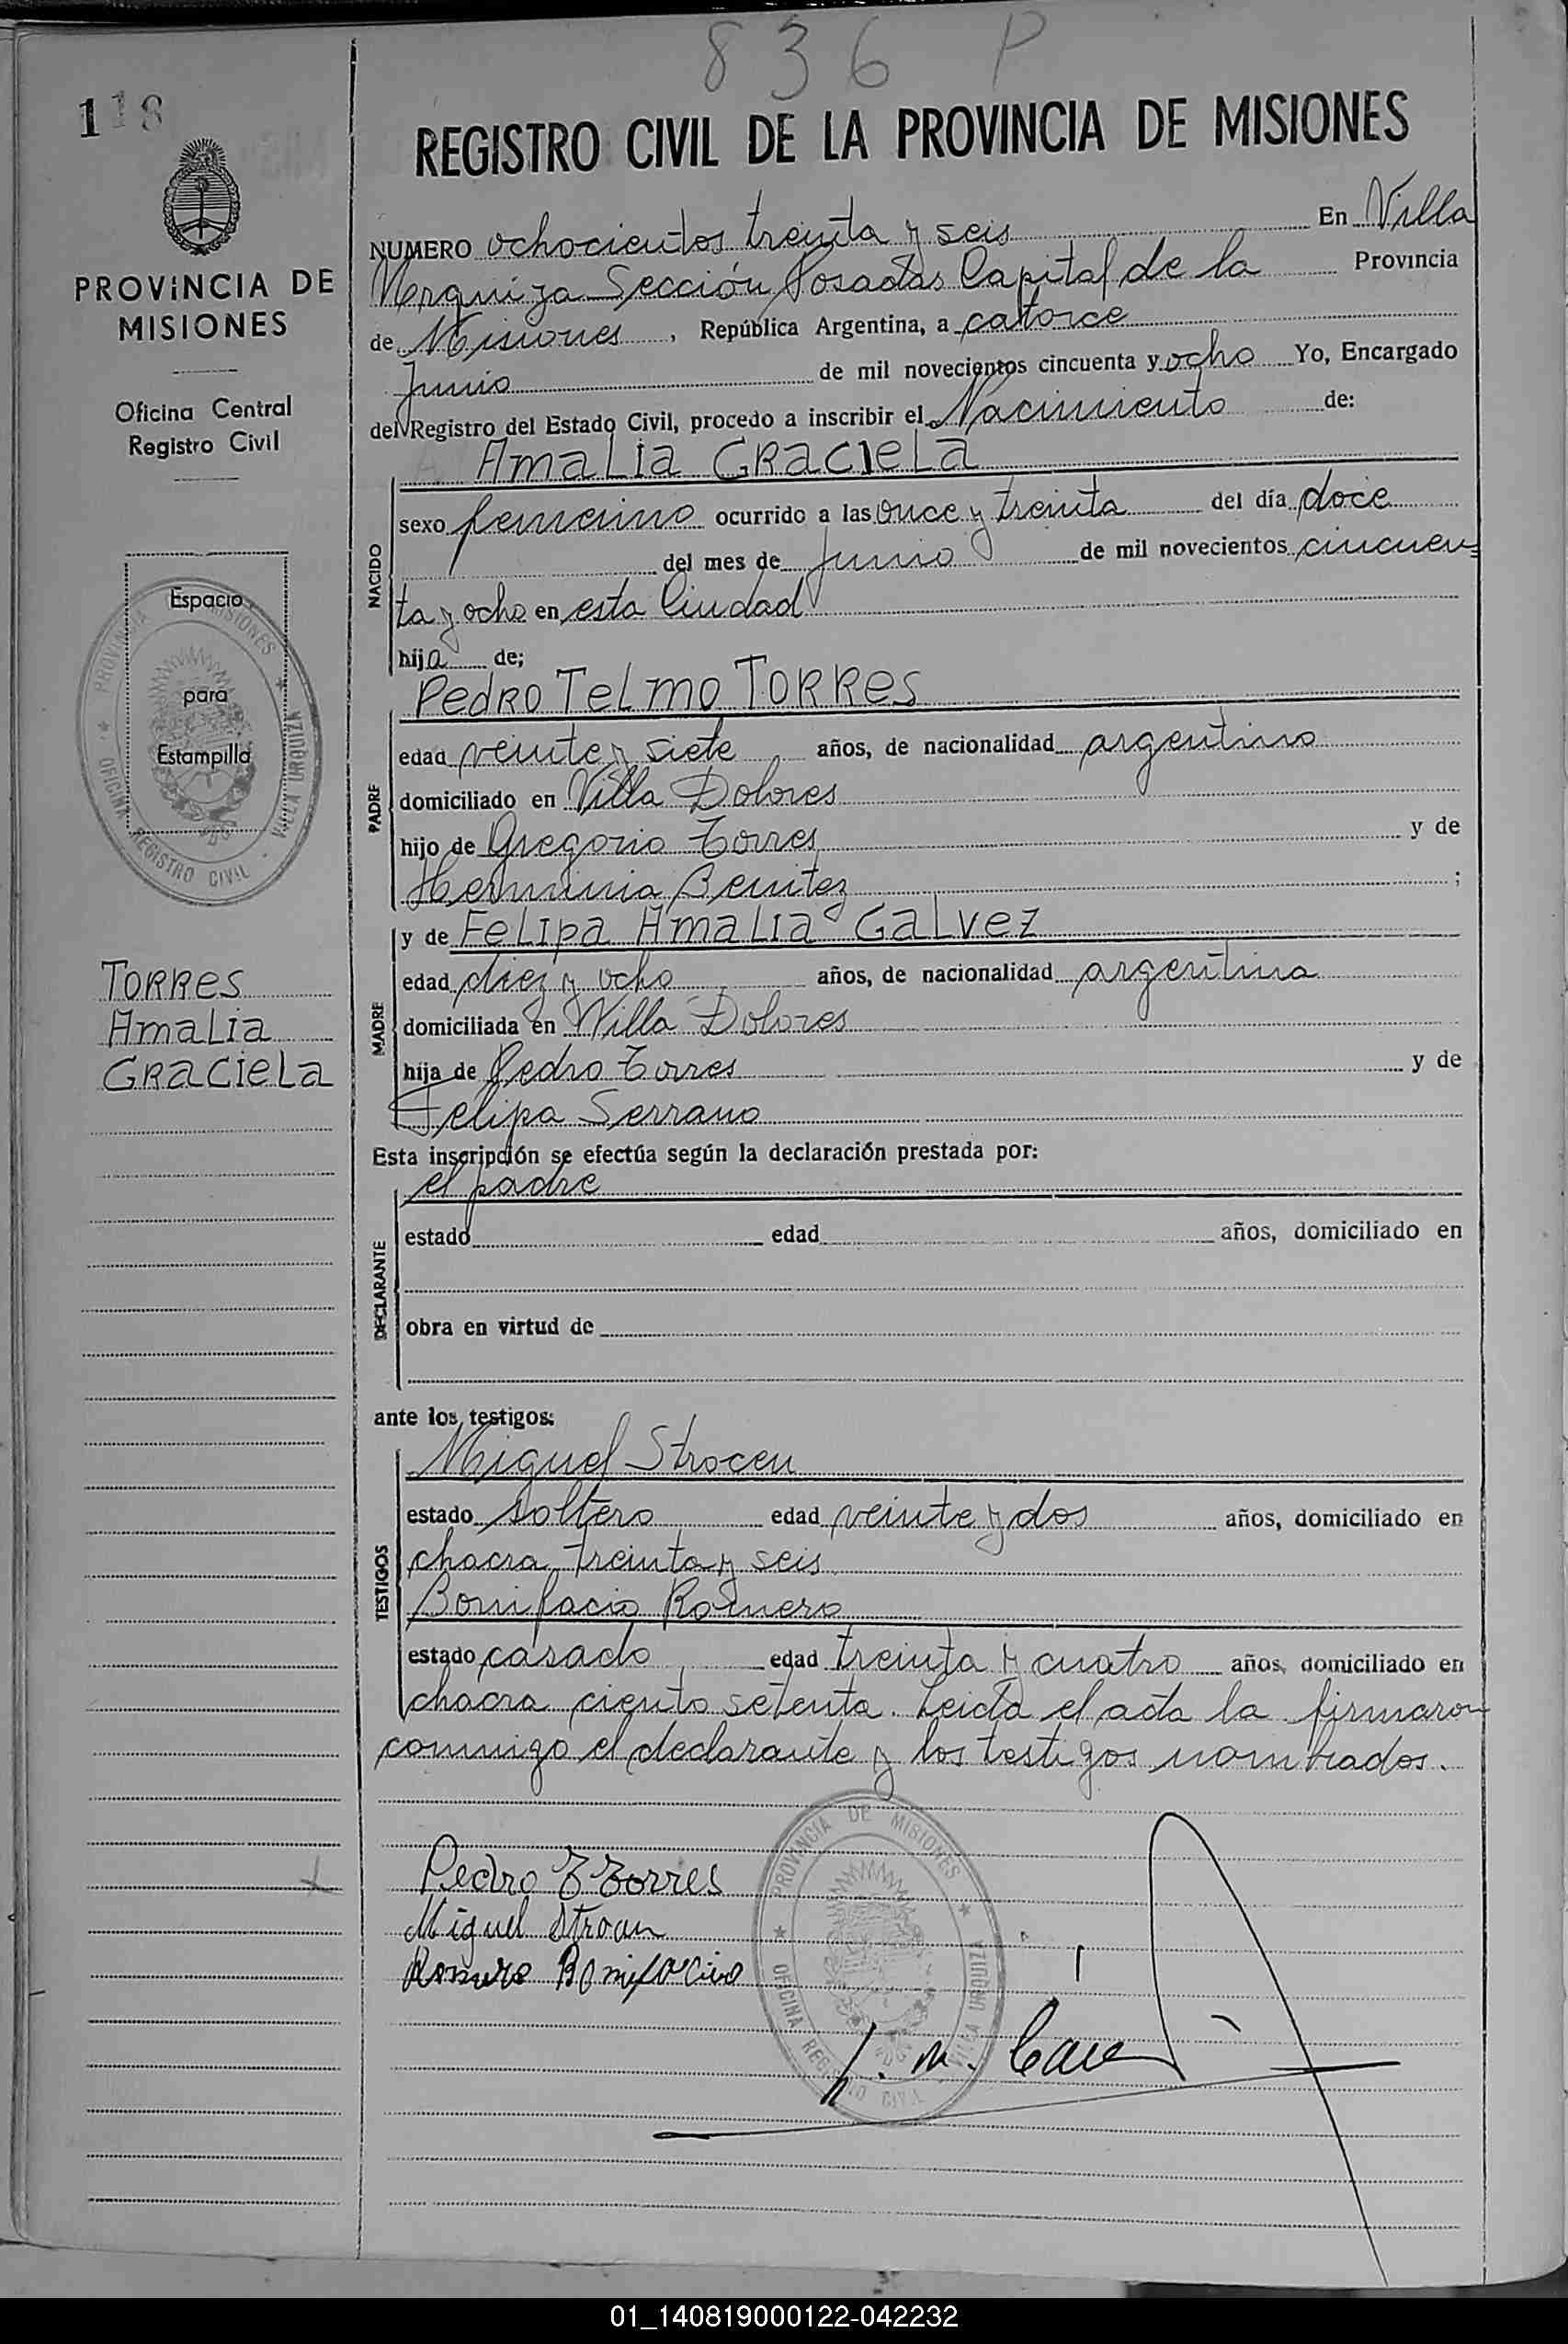 836 P
118
REGISTRO CIVIL DE LA PROVINCIA DE MISIONES
PROVINCIA DE
MISIONES
Oficina Central
Registro Civil
Espacio
para
Estampilla
PROVINCIA DE MISIONES
OFICINA REGISTRO CIVIL - VILLA URQUIZA
TORRES
AMALIA
GRACIELA
NUMERO ochocientos treinta y seis En Villa
Urquiza Sección Posadas Capital de la Provincia
de Misiones, República Argentina, a catorce
Junio de mil novecientos cincuenta y ocho Yo, Encargado
del Registro del Estado Civil, procedo a inscribir el Nacimiento de:
AMALIA GRACIELA
NACIDO
sexo femenino ocurrido a las once y treinta del día doce
del mes de Junio de mil novecientos cincuen=
ta y ocho en esta Ciudad
hija de;
PEDRO TELMO TORRES
PADRE
edad veinte y siete años, de nacionalidad argentino
domiciliado en Villa Dolores
hijo de Gregorio Torres y de
Herminia Benitez ;
y de FELIPA AMALIA GALVEZ
MADRE
edad diez y ocho años, de nacionalidad argentina
domiciliada en Villa Dolores
hija de Pedro Torres y de
Felipa Serrano
Esta inscripción se efectúa según la declaración prestada por:
el padre
DECLARANTE
estado edad años, domiciliado en
obra en virtud de
ante los testigos:
Miguel Strocen
TESTIGOS
estado soltero edad veinte y dos años, domiciliado en
chacra treinta y seis
Bonifacio Romero
estado casado edad treinta y cuatro años, domiciliado en
chacra ciento setenta. Leida el acta la firmaron
conmigo el declarante y los testigos nombrados.
Pedro T Torres
Miguel Strocen
Romero Bonifacio
PROVINCIA DE MISIONES
OFICINA REGISTRO CIVIL VILLA URQUIZA
01_140819000122-042232